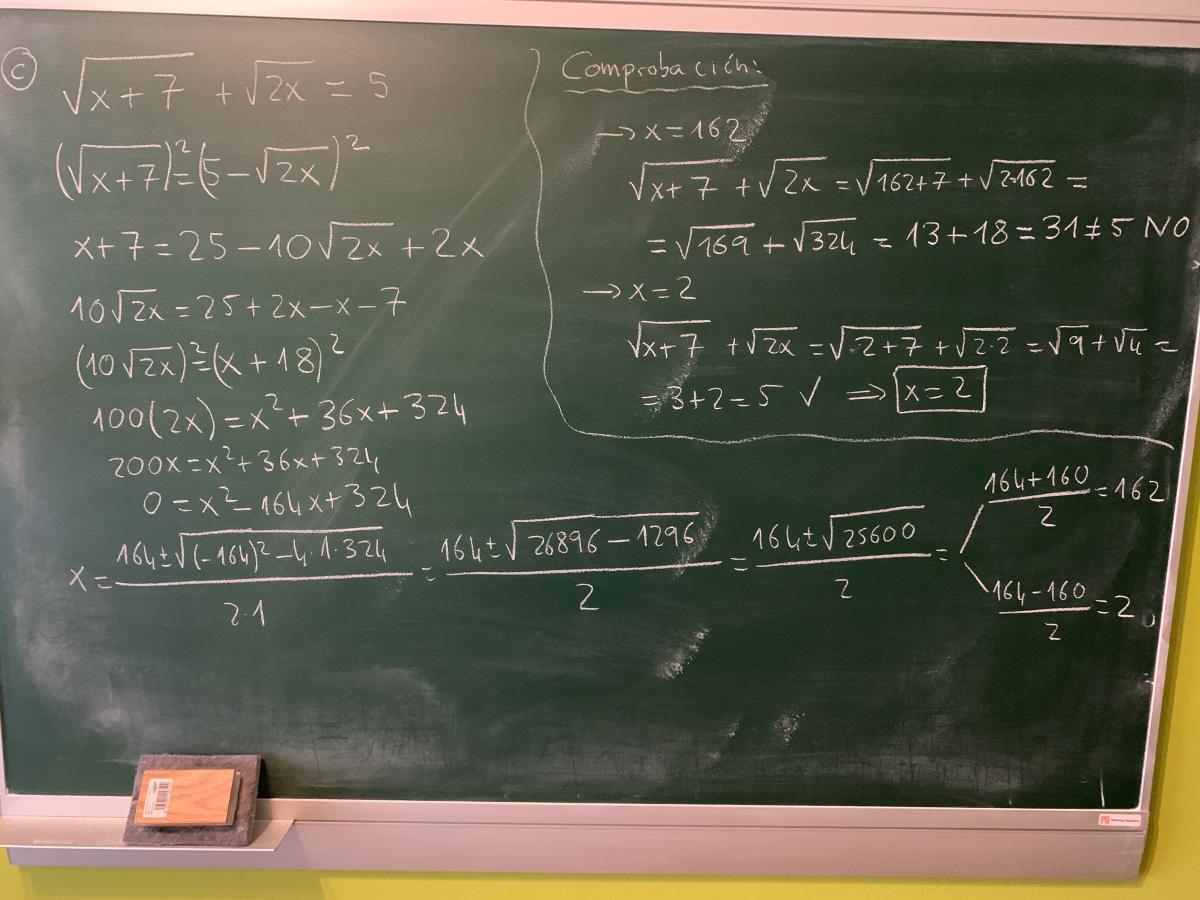 c
√(x+7) + √(2x) = 5
(√(x+7))² = (5 − √(2x))²
x+7 = 25 − 10√(2x) + 2x
10√(2x) = 25 + 2x − x − 7
(10√(2x))² = (x + 18)²
100(2x) = x² + 36x + 324
200x = x² + 36x + 324
0 = x² − 164x + 324
x = (164 ± √((−164)² − 4·1·324))/(2·1) = (164 ± √(26896 − 1296))/2 = (164 ± √25600)/2 =
(164+160)/2 = 162
(164−160)/2 = 2
Comprobación:
→ x = 162
√(x+7) + √(2x) = √(162+7) + √(2·162) =
= √169 + √324 = 13 + 18 = 31 ≠ 5 NO
→ x = 2
√(x+7) + √(2x) = √(2+7) + √(2·2) = √9 + √4 =
= 3+2 = 5 ✓ ⇒ x = 2